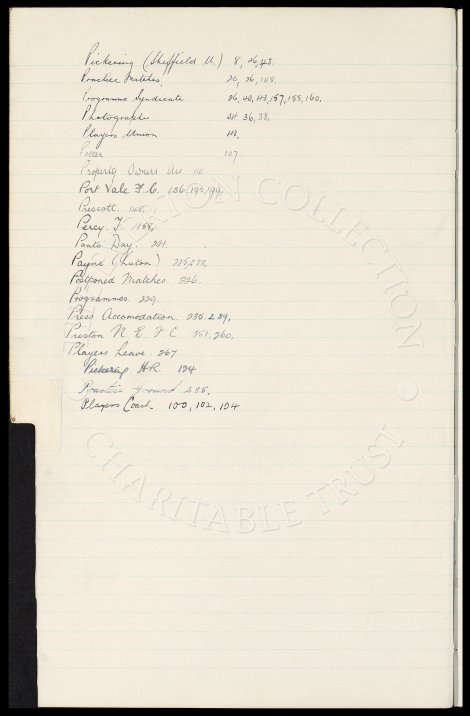 Pickering (Sheffield U.) 8, 26, 43.
Practice Matches, 20, 26, 148.
Programme Syndicate 26, 42, 43, 157, 159, 160.
Photographs 24 36, 38.
Players Union 43.
Poker 107
Property Owners Ass. 110.
Port Vale F.C. 136, 195, 199,
Prescott 148.
Percy. J. 158.
Ponto Day. 221.
Payne (Luton) 225, 272.
Postponed Matches. 226.
Programmes. 229.
Press Accomodation. 235 289.
Preston N. E. F.C. 251, 260.
Players Leave. 267
Pickering H.R. 124
Practice ground 235.
Players Coach. 100, 102, 104
EVERTON COLLECTION
CHARITABLE TRUST